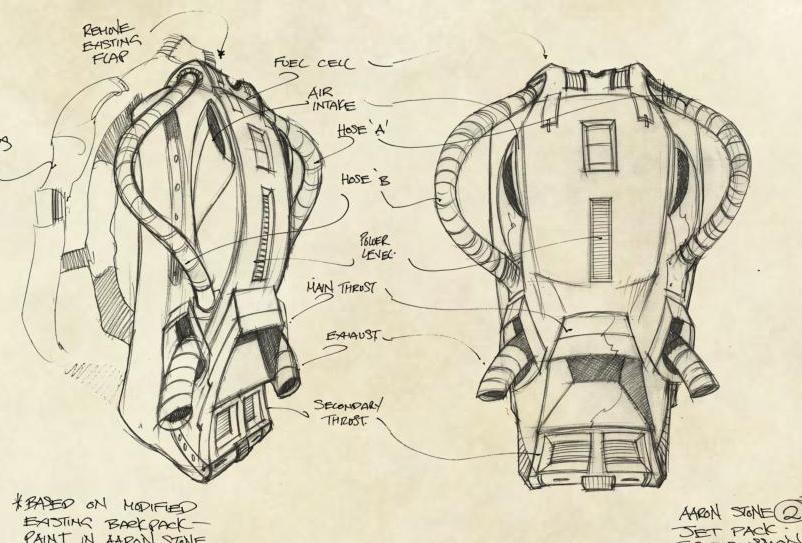 REMOVE
EXISTING
FLAP
FUEL CELL
AIR
INTAKE
HOSE 'A'
HOSE 'B
POWER
LEVEL
MAIN THRUST
EXHAUST
SECONDARY
THRUST
* BASED ON MODIFIED
EXISTING BACKPACK -
PAINT IN AARON STONE
AARON STONE 2
JET PACK